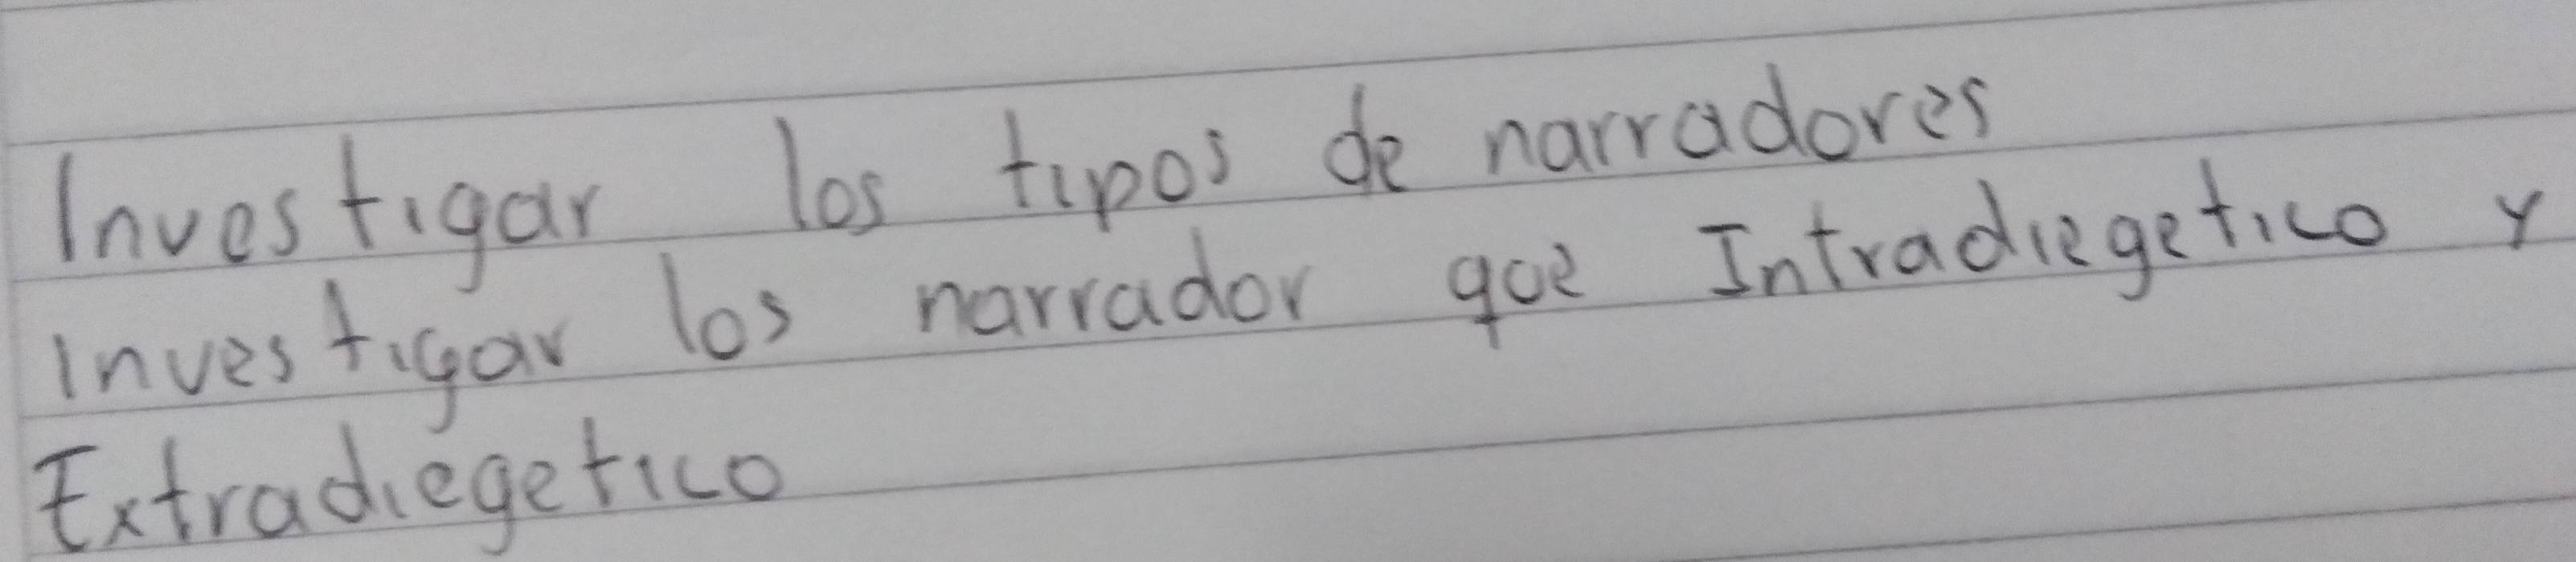 Investigar los tipos de narradores
investigar los narrador que Intradiegetico y
Extradiegetico